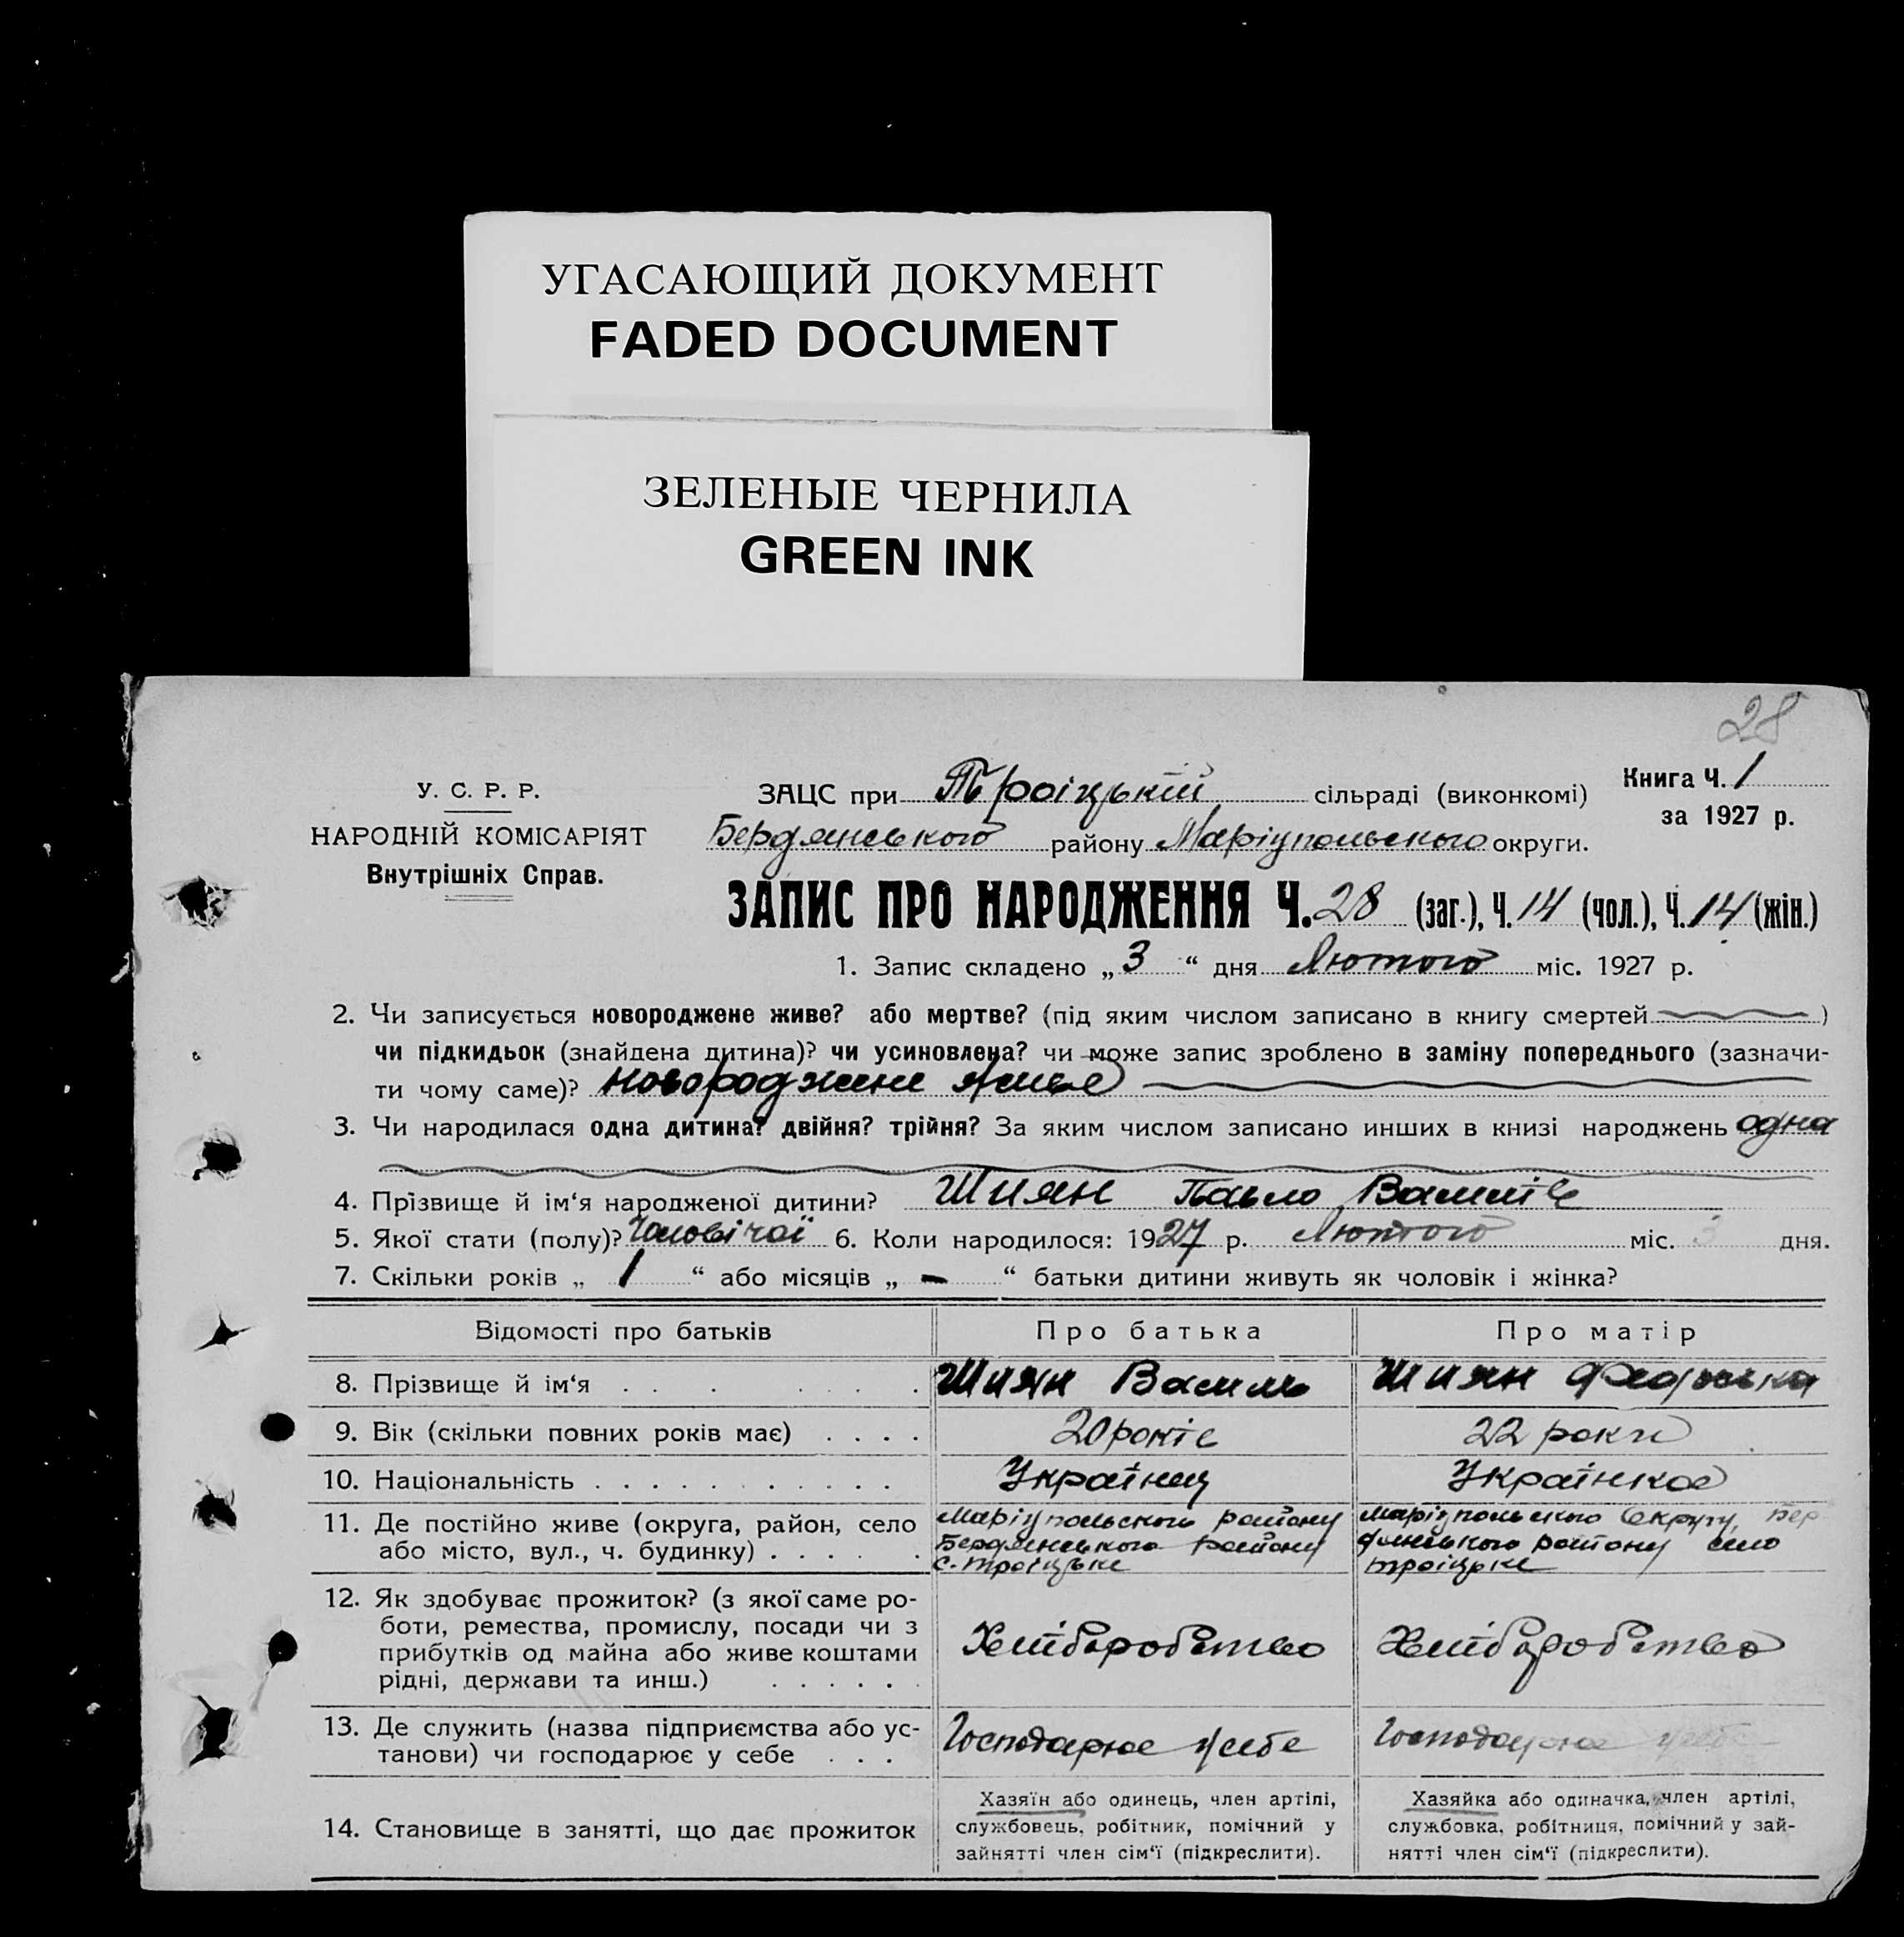 УГАСАЮЩИЙ ДОКУМЕНТ
FADED DOCUMENT
ЗЕЛЕНЫЕ ЧЕРНИЛА
GREEN INK
28
У. С. Р. Р.
НАРОДНІЙ КОМІСАРІЯТ
Внутрішніх Справ.
ЗАЦС при Троіцькій сільраді (виконкомі)
Бердянського району Маріупольського округи.
Книга Ч. 1
за 1927 р.
ЗАПИС ПРО НАРОДЖЕННЯ Ч. 28 (заг.), Ч. 14 (чол.), Ч. 14 (жін.)
1. Запис складено „ 3 “ дня Лютого міс. 1927 р.
2. Чи записується новороджене живе? або мертве? (під яким числом записано в книгу смертей )
чи підкидьок (знайдена дитина)? чи усиновлена? чи може запис зроблено в заміну попереднього (зазначи-
ти чому саме)? новороджене живе
3. Чи народилася одна дитина? двійня? трійня? За яким числом записано инших в книзі народжень одна
4. Прізвище й ім‘я народженої дитини? Шиян Павло Василів
5. Якої статі (полу)? Чоловічої 6. Коли народилося: 1927 р. Лютого міс. 3 дня.
7. Скільки років „ 1 “ або місяців „ - “ батьки дитини живуть як чоловік і жінка?
Відомості про батьків Про батька Про матір
8. Прізвище й ім‘я Шиян Василь Шиян
9. Вік (скільки повних років має) 20 років 22 роки
10. Національність Українец Українкою
11. Де постійно живе (округа, район, село
або місто, вул., ч. будинку)
Маріупольського району
Бердянського району
с. Троіцьке
Маріупольського Округу, Бер
дянського району село
Троіцьке
12. Як здобуває прожиток? (з якої саме ро-
боти, ремества, промислу, посади чи з
прибутків од майна або живе коштами
рідні, держави та инш.)
Хліборобство Хліборобство
13. Де служить (назва підприємства або ус-
танови) чи господарює у себе
Господарює у себе Господарює у себе
14. Становище в занятті, що дає прожиток
Хазяїн або одинець, член артілі,
службовець, робітник, помічний у
зайнятті член сім‘ї (підкреслити).
Хазяйка або одиначка, член артілі,
службовка, робітниця, помічний у зай-
нятті член сім‘ї (підкреслити).